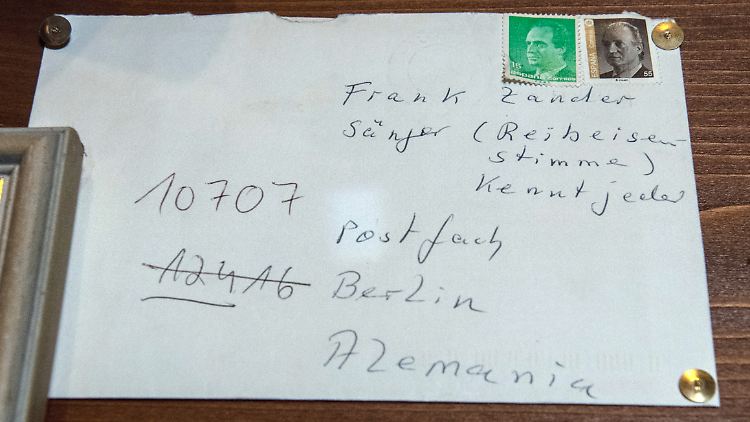 16
ESPAÑA CORREOS
ESPAÑA
55
Frank Zander
Sänger (Reibeisen-
stimme)
Kennt jeder
10707
Postfach
12416
Berlin
Alemania